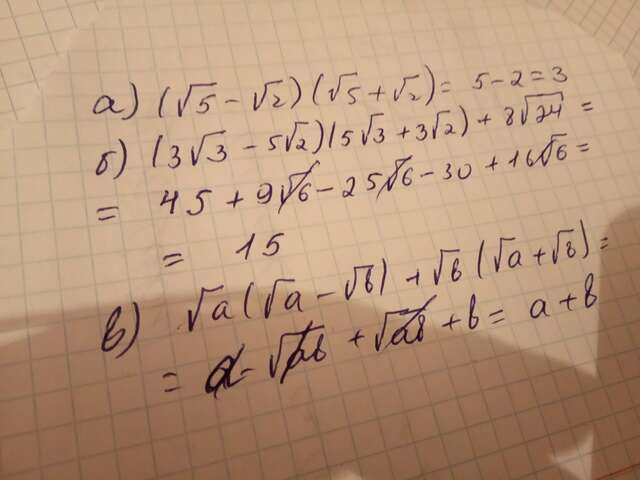 а) (√5 - √2)(√5 + √2) = 5 - 2 = 3
б) (3√3 - 5√2)(5√3 + 3√2) + 8√24 =
= 45 + 9√6 - 25√6 - 30 + 16√6 =
= 15
в) √a(√a - √b) + √b(√a + √b) =
= a - √ab + √ab + b = a + b